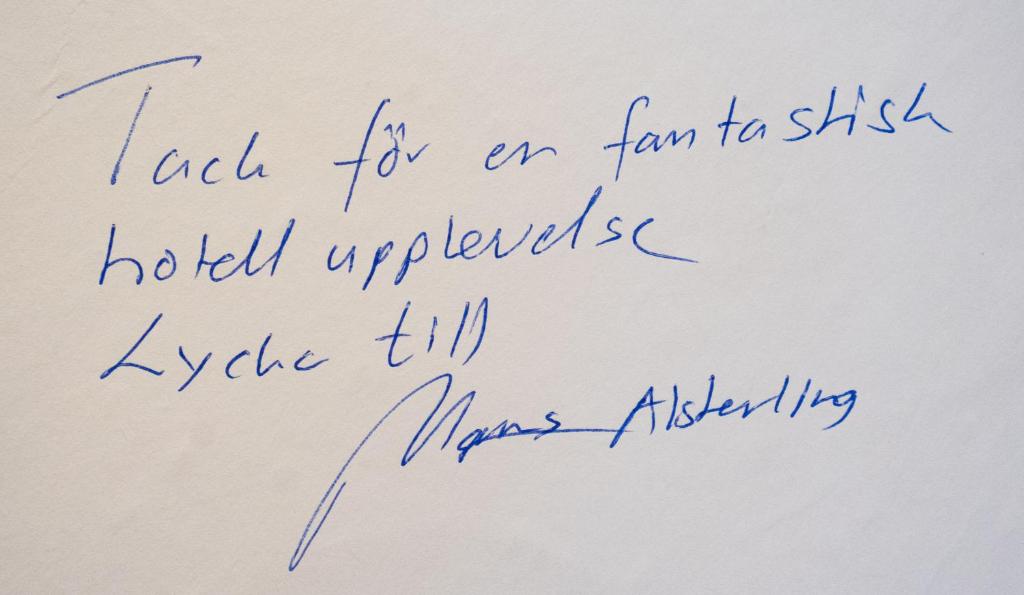 Tack för en fantastisk
hotell upplevelse
Lycka till
Måns Alsterling